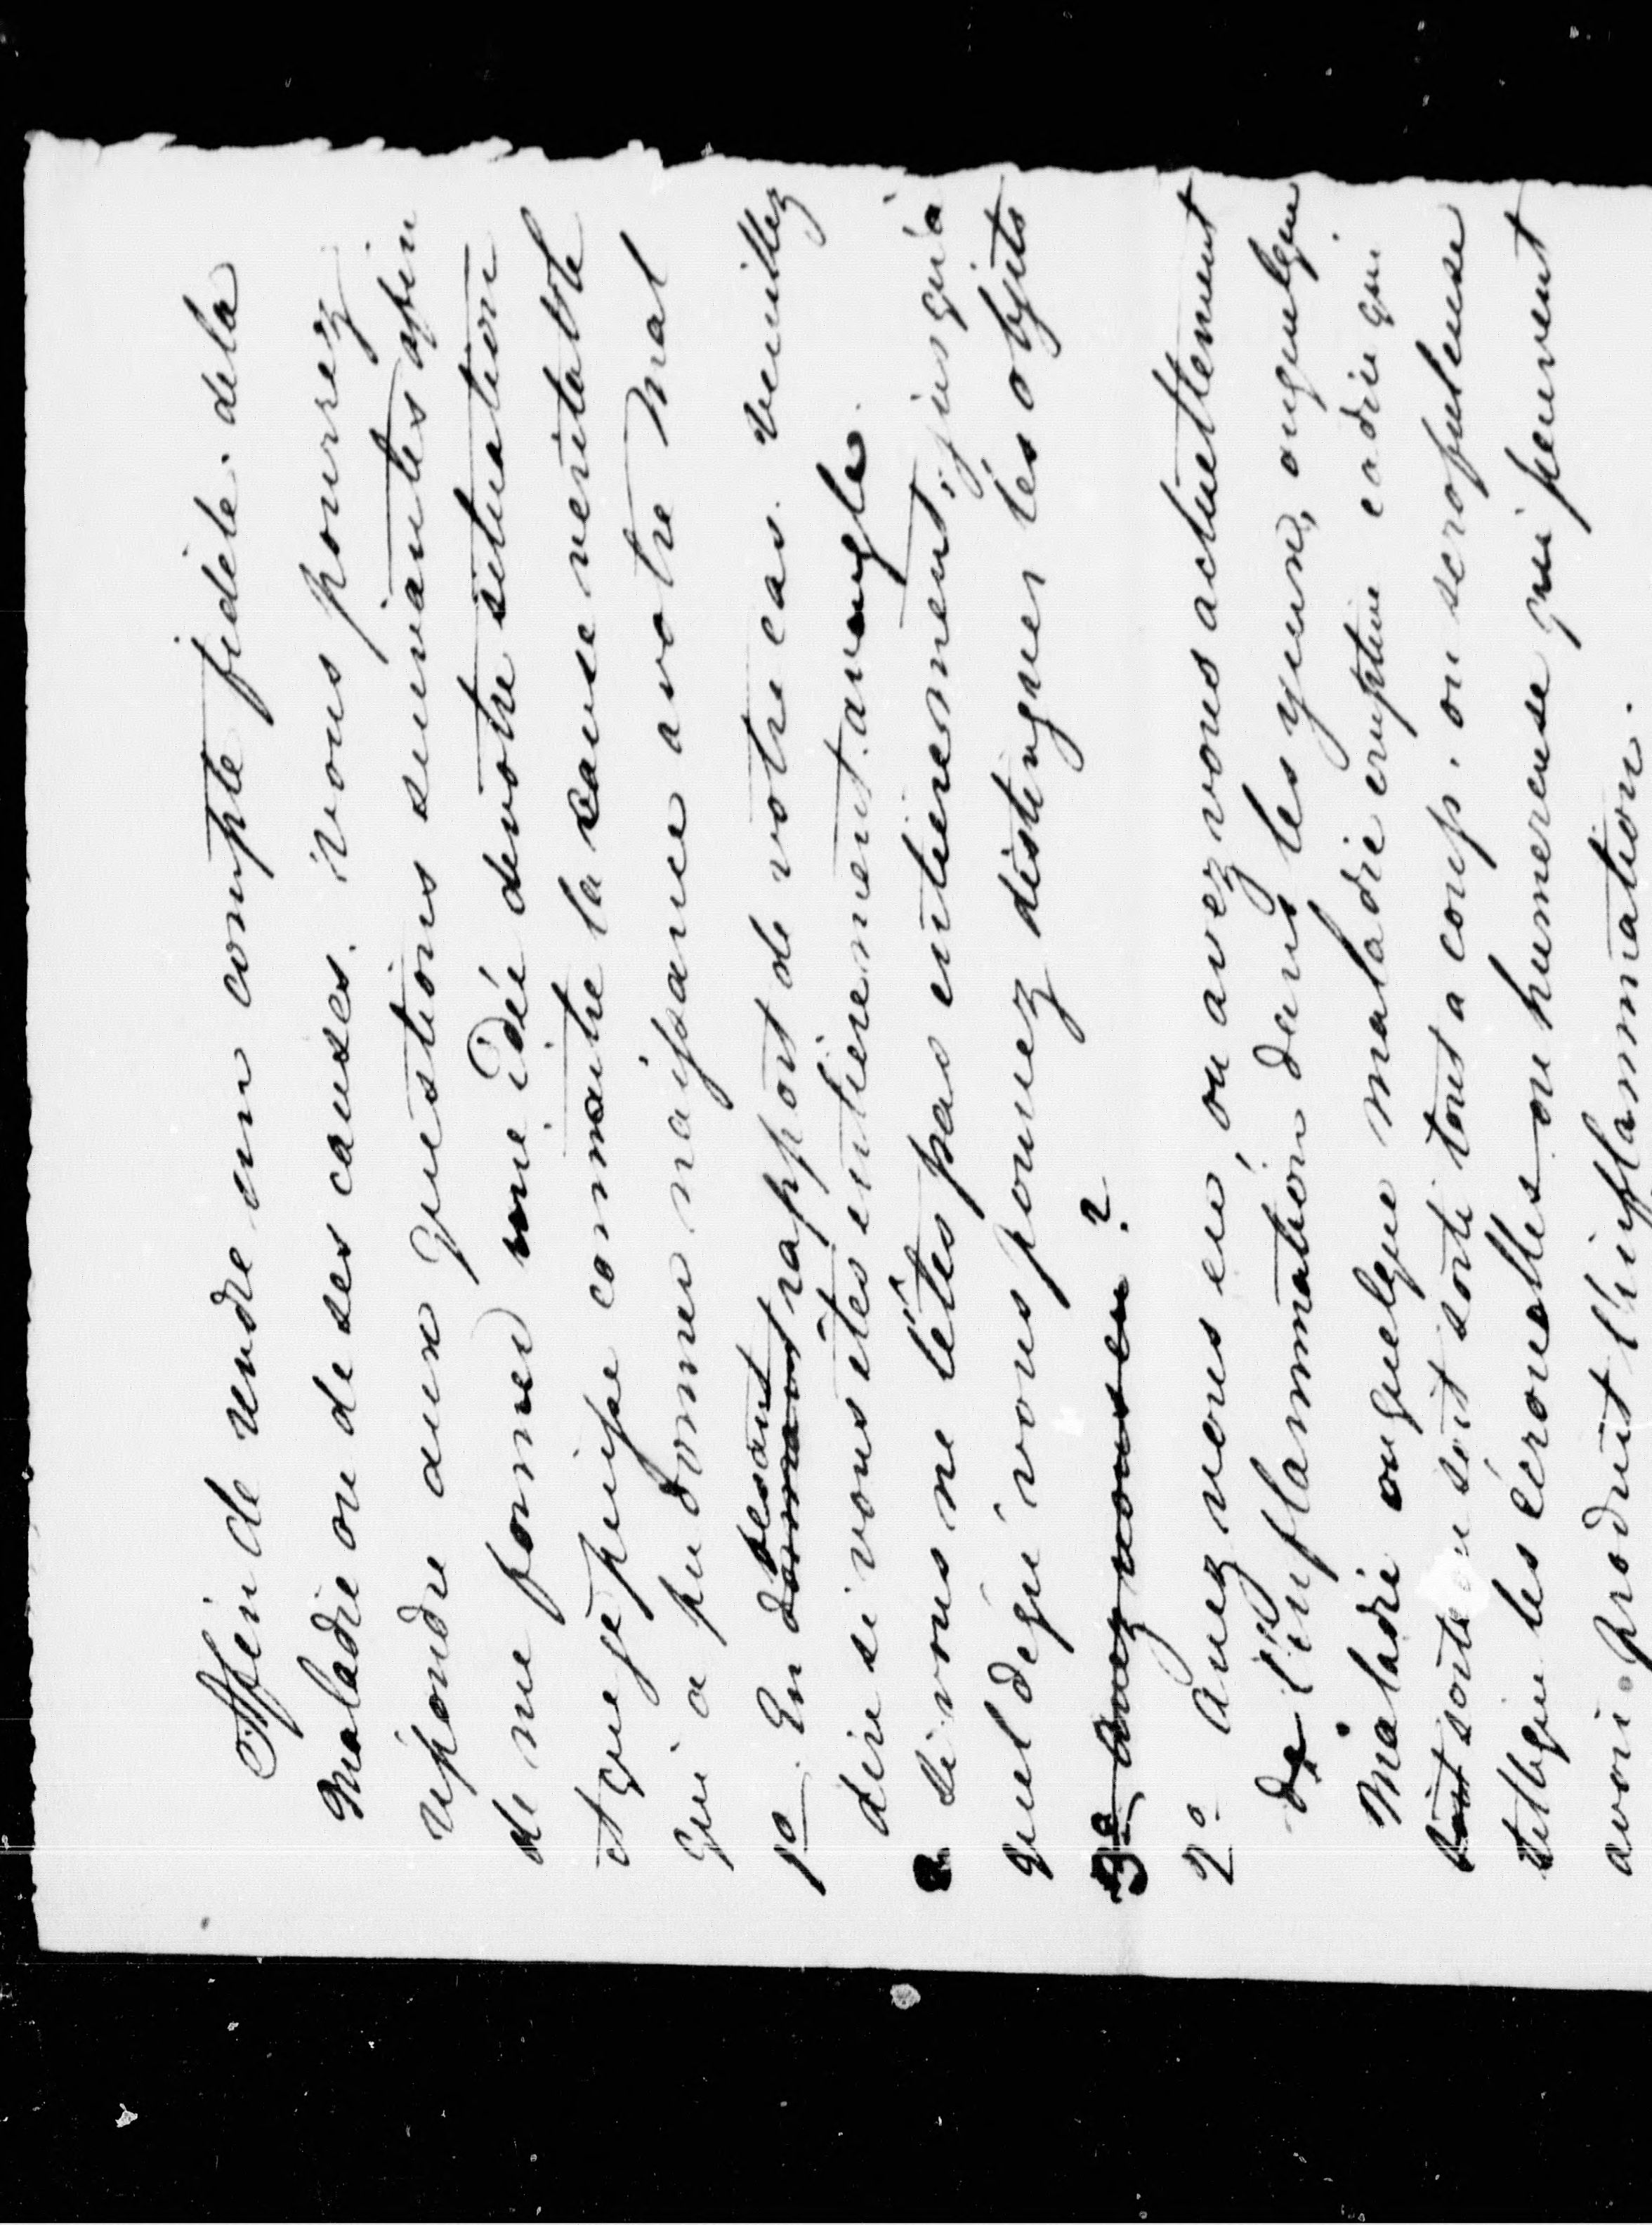 Afin de rendre un compte fidele. dela
Maladie ou de ses causes. Vous pourrez
répondre aux Questions suivantes afin
de me former une idée devotre situation
et que je puisse connaitre la cause veritable
qui a pu donner naissance a votre mal
1o En donnant fesant rapport de votre cas. veuillez
dire si vous êtes entièrement. aveugle.
Si vous ne l'êtes pas entierement; jusqu'à
quel degré vous pouvez distinguer les objets
3o Avez vous eu ?
2o Avez vous eu, ou avez vous actuellement
de l'inflammation dans les yeux, ouquelque
Maladie ouquelque maladie eruptive cadie qui
soit sortie ou soit sorti tout a coup. ou scrofuleuse
telleque les écrouelles ou humereuse qui peuvent
avoir Produit l'inflammation.